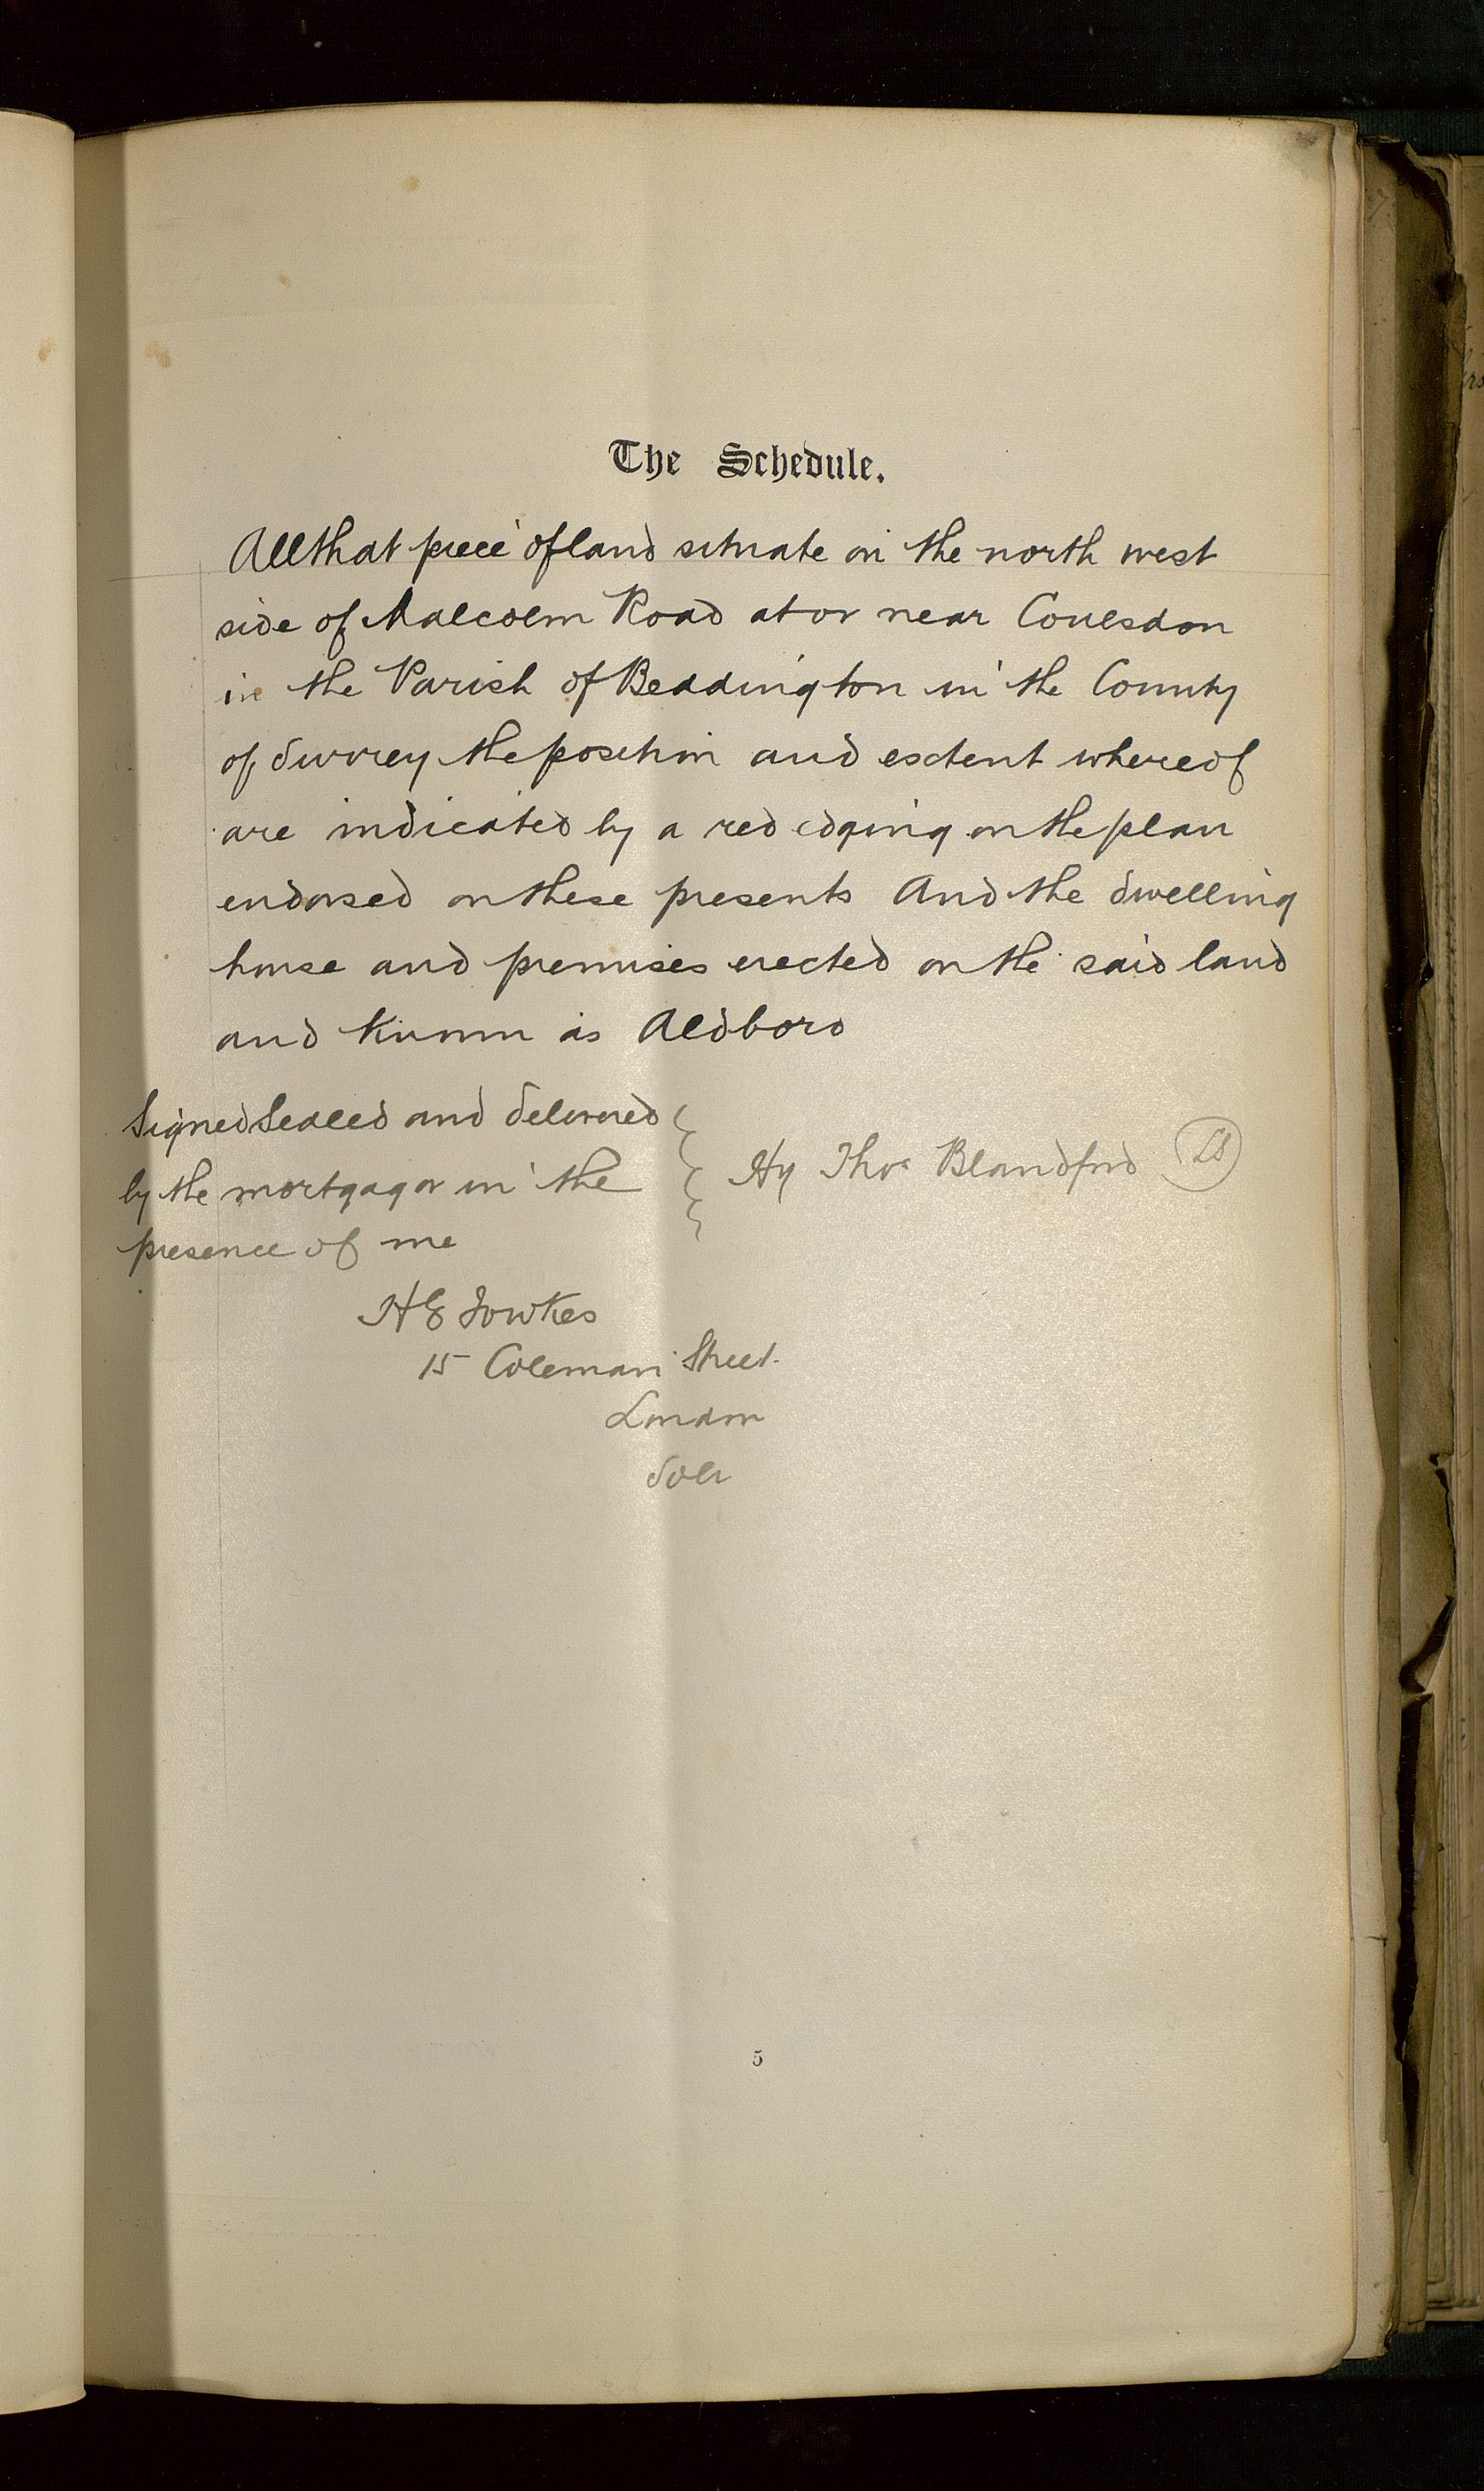 The Schedule.
All that piece of land situate on the north west
side of Malcolm Road at or near Coulsdon
in the Parish of Beddington in the County
of Surrey the position and extent whereof
are indicated by a red edging on the plan
endorsed on these presents And the dwelling
house and premises erected on the said land
and known as Aldboro
Signed Sealed and delivered
by the mortgagor in the
presence of me
Hy Thos Blandford LS
H E Fowkes
15 Coleman Street
London
Solr
5